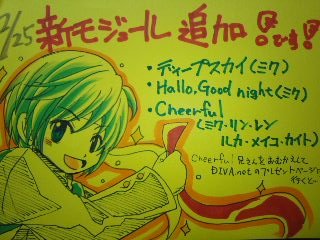 2/25 新モジュール 追加!です!
・ディープスカイ(ミク)
・Hallo,Good night(ミク)
・Cheerful
(ミク・リン・レン
ルカ・メイコ・カイト)
Cheerful 兄さんをおむかえして
DIVA.netのプレゼントページに
行くと…